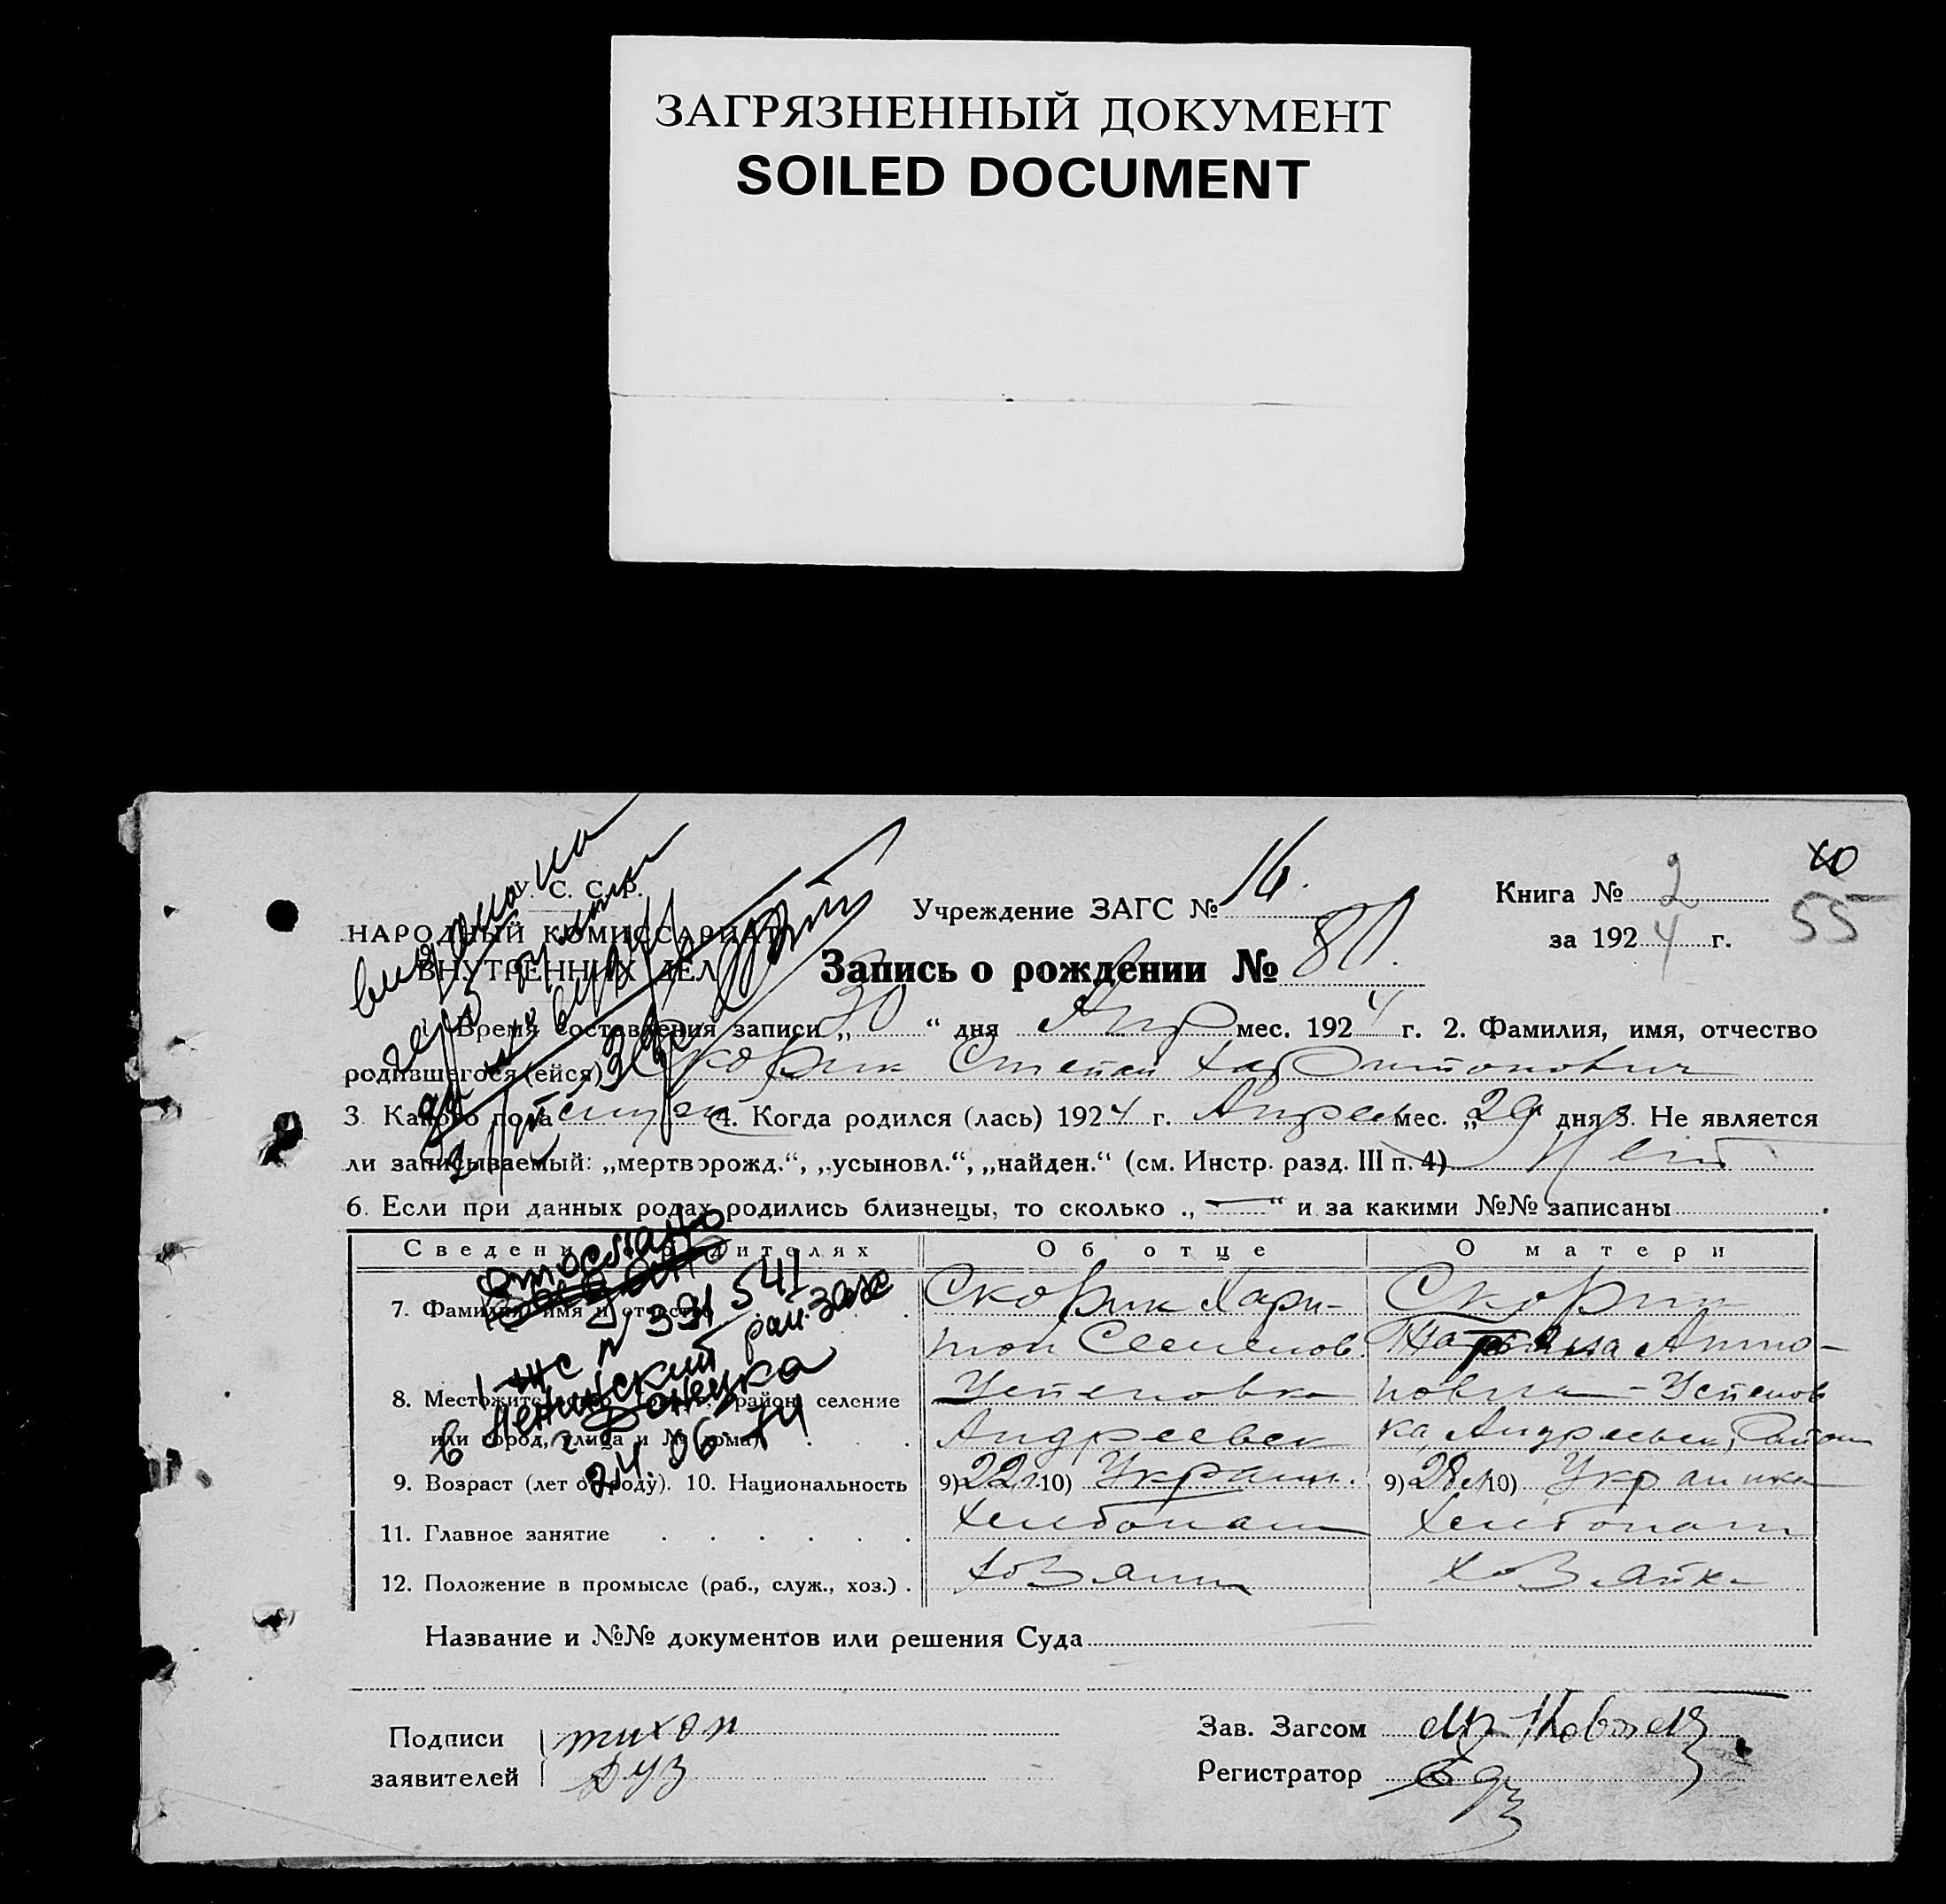 ЗАГРЯЗНЕННЫЙ ДОКУМЕНТ
SOILED DOCUMENT
У. С. С. Р.
НАРОДНЫЙ КОМИССАРИАТ
ВНУТРЕННИХ ДЕЛ
Учреждение ЗАГС № 16.
Книга № 2
за 1924 г.
55
Запись о рождении № 80.
1. Время составления записи „30“ дня Апр мес. 1924 г. 2. Фамилия, имя, отчество
родившегося (ейся) Скорик Степан Харитонович
3. Какого пола 4. Когда родился (лась) 1924 г. Апрель мес. „29“ дня 5. Не является
ли записываемый: „мертворожд.“, „усыновл.“, „найден.“ (см. Инстр. разд. III п. 4) Нет
6. Если при данных родах родились близнецы, то сколько „—“ и за какими №№ записаны
Сведения о родителях Об отце О матери
7. Фамилия, имя и отчество Скорик Хари- Скорик
тон Семенов. Анто-
8. Местожительство район, селение Успеновка новна - Успенов
или город, улица и № дома) Андреевск ка, Андреевск, Район
9. Возраст (лет от роду). 10. Национальность 9) 22 л. 10) Украин. 9) 28 л. 10) Украинка
11. Главное занятие Хлебопаш Хлебопаш
12. Положение в промысле (раб., служ., хоз.) Хозяин Хозяйка
отослано
1 экз № 331541
в Ленинский рай.загс
г. Донецка
24.06.74
Название и №№ документов или решения Суда
Подписи заявителей тихон
Зав. Загсом
Регистратор